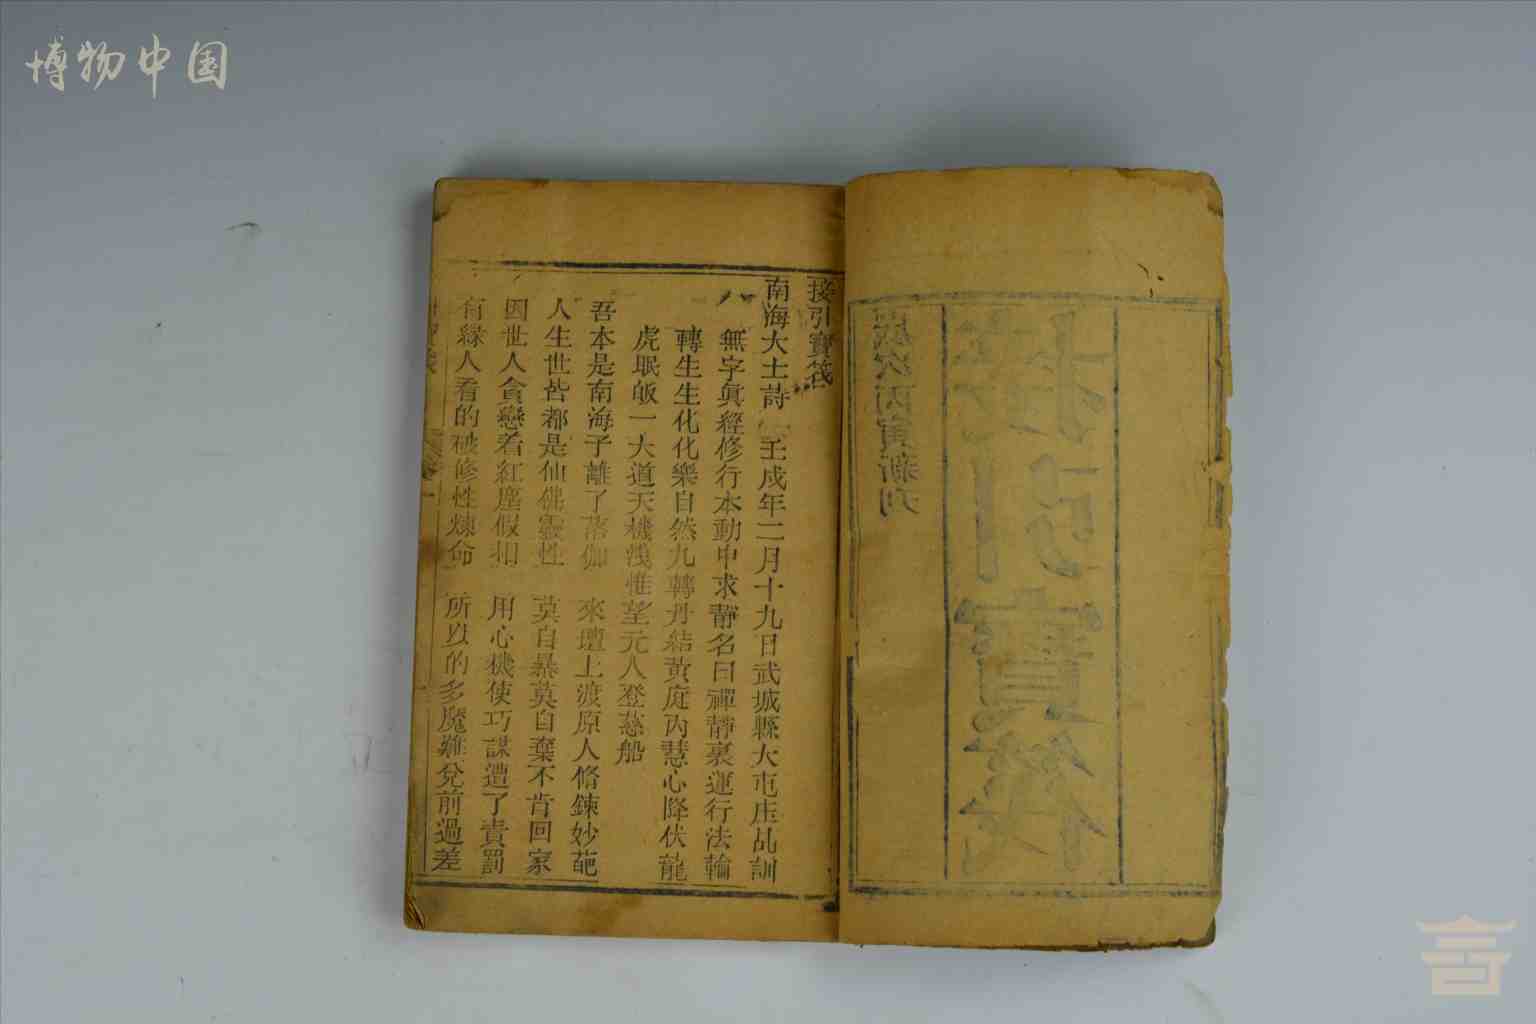 博物中国
歲次丙寅新刋
接引寶筏
接引寶筏
南海大士詩 壬戌年二月十九日武城縣大屯庄乩訓
無字眞經修行本動中求靜名曰禪靜裏運行法輪
轉生生化化樂自然九轉丹結黃庭內慧心降伏龍
虎眠皈一大道天機淺惟望元人登慈船
吾本是南海子離了落伽 來壇上渡原人脩鍊妙葩
人生世皆都是仙佛靈性 莫自暴莫自棄不肯回家
因世人貪戀着紅塵假相 用心機使巧謀遭了責罰
有緣人看的破修性煉命 所以的多魔難兌前過差